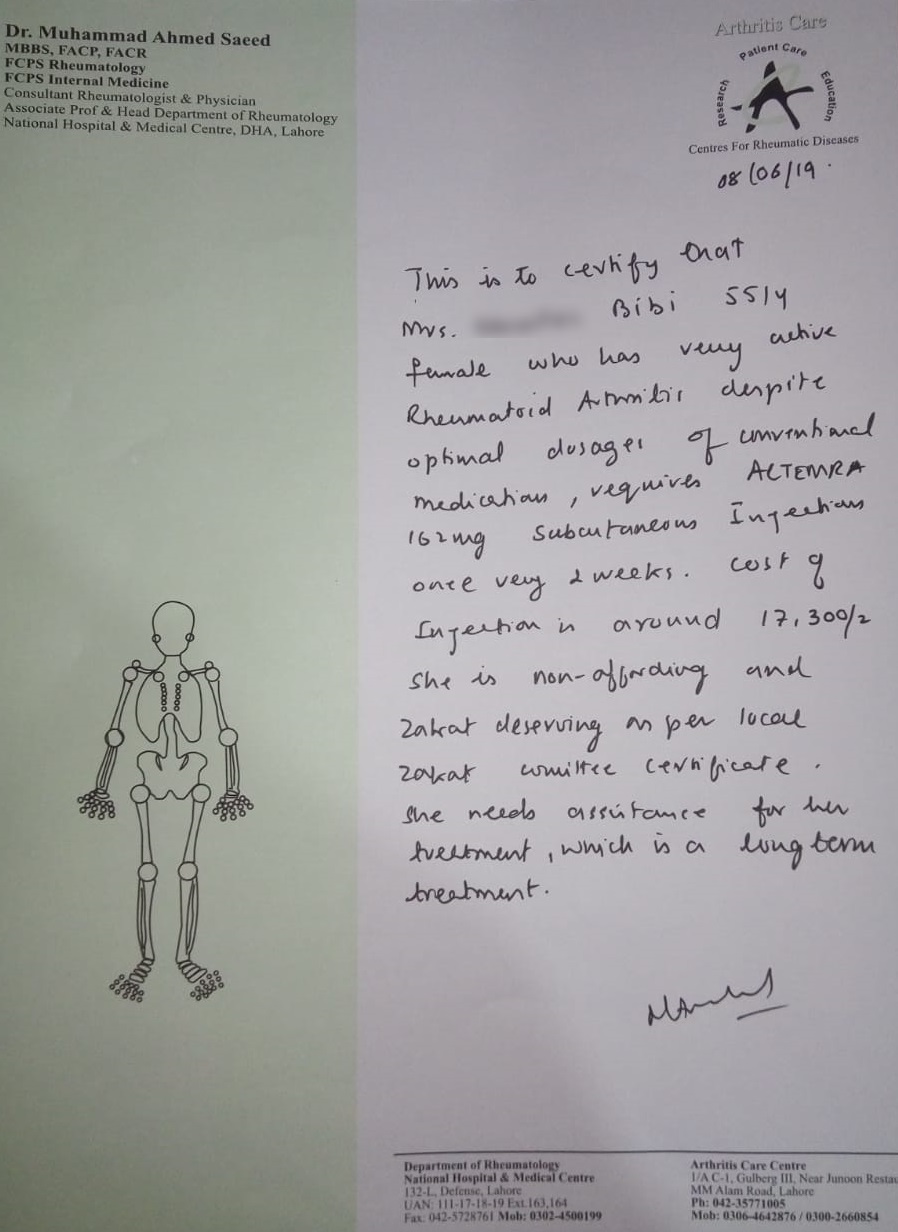 Dr. Muhammad Ahmed Saeed
MBBS, FACP, FACR
FCPS Rheumatology
FCPS Internal Medicine
Consultant Rheumatologist & Physician
Associate Prof & Head Department of Rheumatology
National Hospital & Medical Centre, DHA, Lahore
Arthritis Care
Patient Care
Research
Education
Centres For Rheumatic Diseases
08/06/19.
This is to certify that
Mrs. Bibi 55/y
female who has very active
Rheumatoid Arthritis despite
optimal dosages of conventional
medications, requires ACTEMRA
162mg Subcutaneous Injections
once very 2 weeks. cost of
Injection is around 17,300/2
She is non-affording and
Zakat deserving as per local
Zakat comittee certificate.
She needs assistance for her
treatment, which is a long term
treatment.
Department of Rheumatology
National Hospital & Medical Centre
132-L, Defense, Lahore
UAN: 111-17-18-19 Ext.163,164
Fax: 042-5728761 Mob: 0302-4500199
Arthritis Care Centre
1/A C-1, Gulberg III, Near Junoon Restau
MM Alam Road, Lahore
Ph: 042-35771005
Mob: 0306-4642876 / 0300-2660854